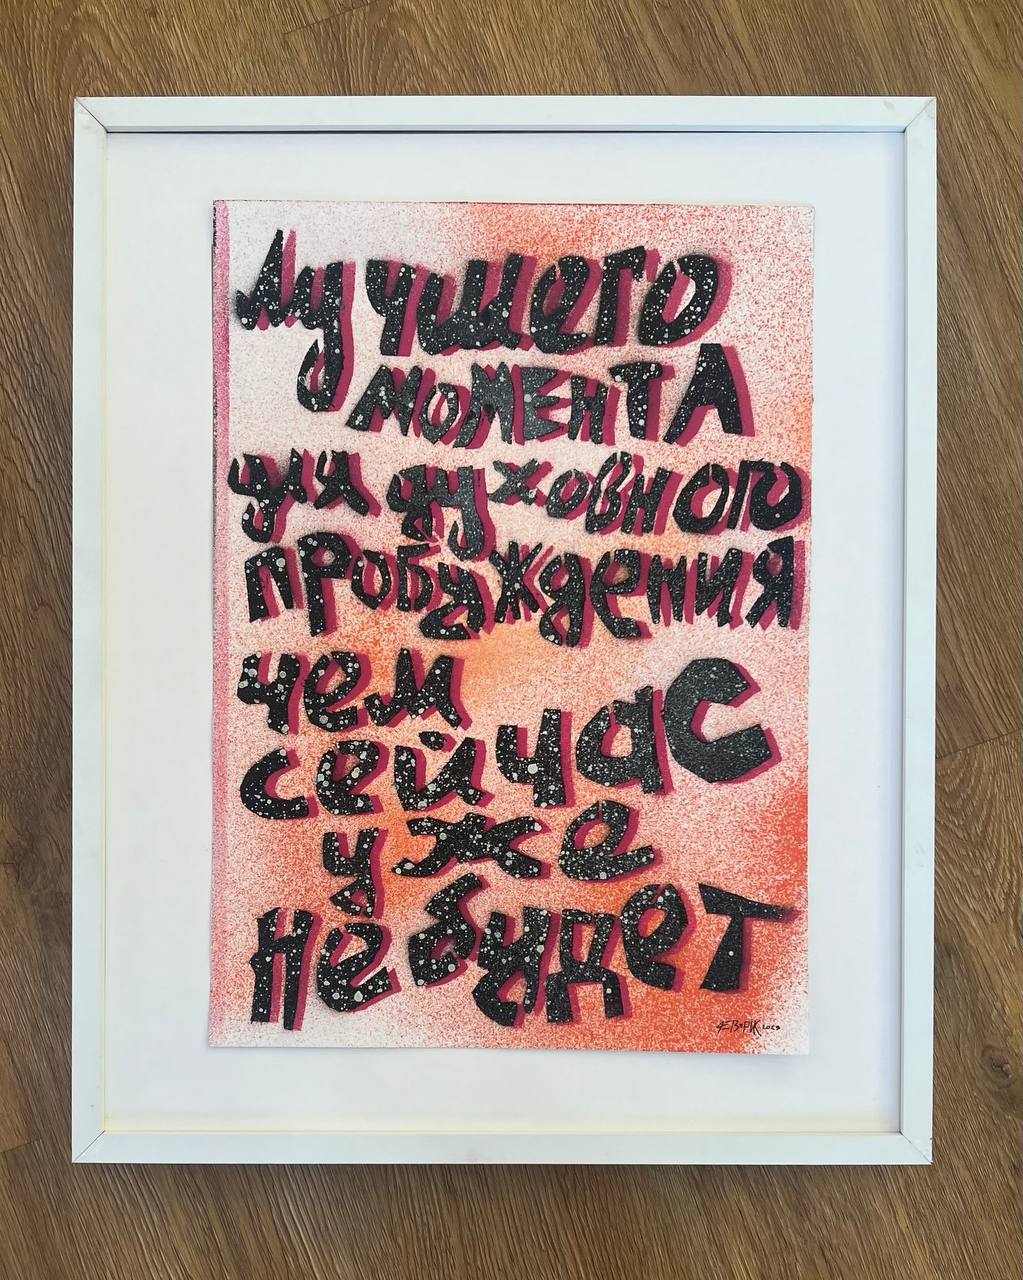 Лучшего
момента
для духовного
пробуждения
чем
сейчас
уже
не будет
2023